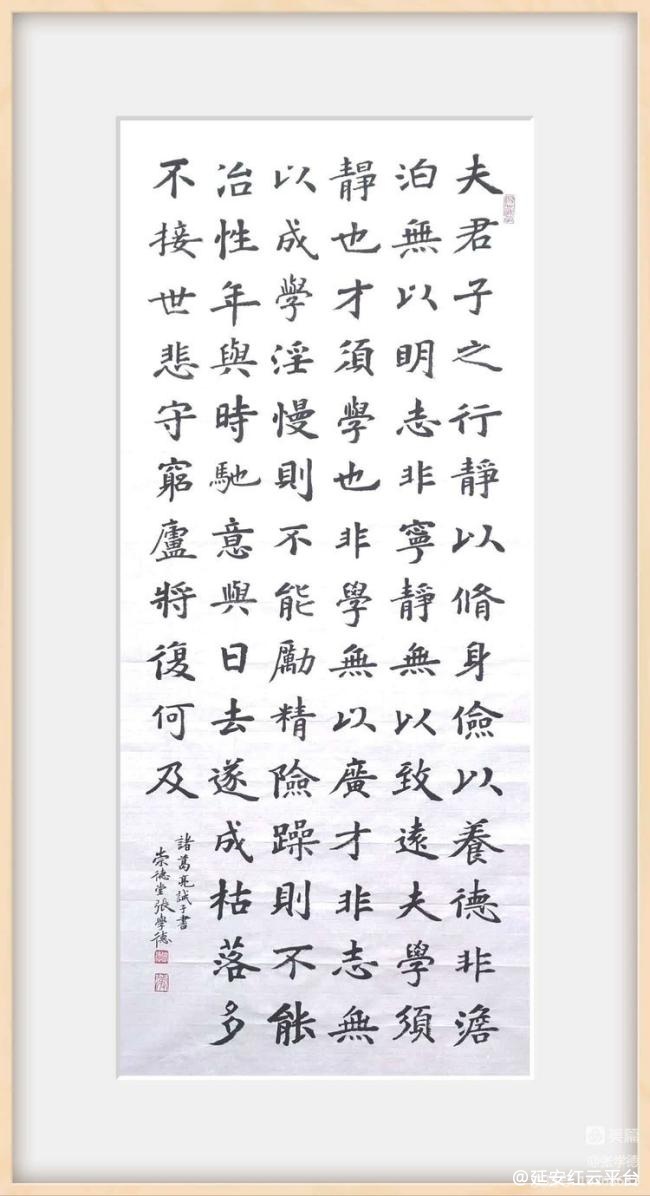 夫君子之行靜以脩身儉以養德非澹
泊無以明志非寧靜無以致遠夫學須
靜也才須學也非學無以廣才非志無
以成學淫慢則不能勵精險躁則不能
冶性年與時馳意與日去遂成枯落多
不接世悲守窮廬將復何及
諸葛亮誡子書
崇德堂張學德
美篇
@张学德
@延安红云平台